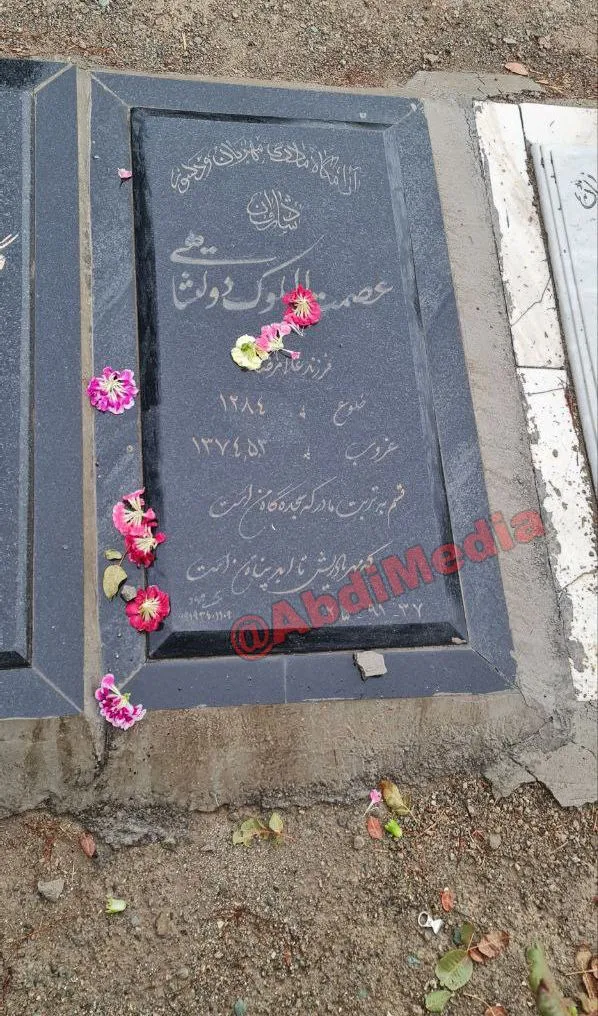 آرامگاه مادری مهربان و دلسوز
شادروان
عصمت الملوک دولتشاهی
فرزند غلامرضا
طلوع ۱۲۸٤
غروب ۱۳۷٤,۵,۳
قسم به تربت مادر که سجده گاه من است
که مهر مادریش تا ابد پناه من است
۲۵ - ۹۱ - ۳۷
@AbdiMedia